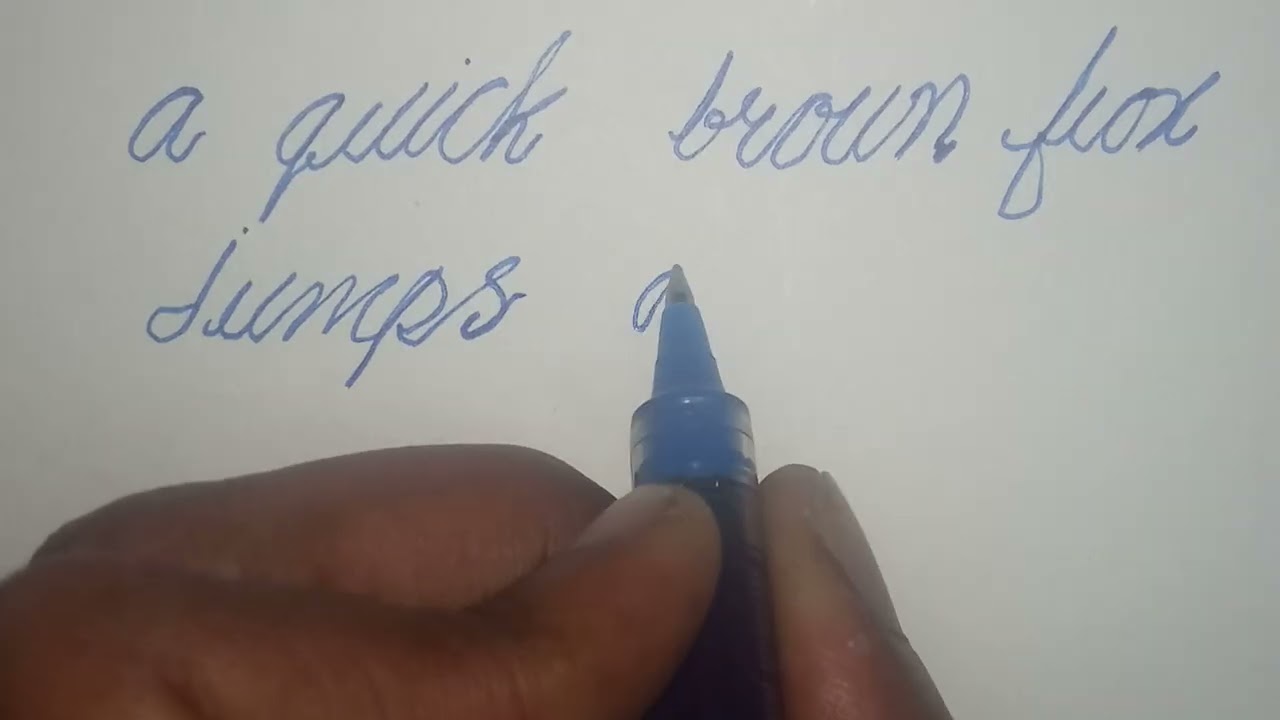 a quick brown fox
jumps o